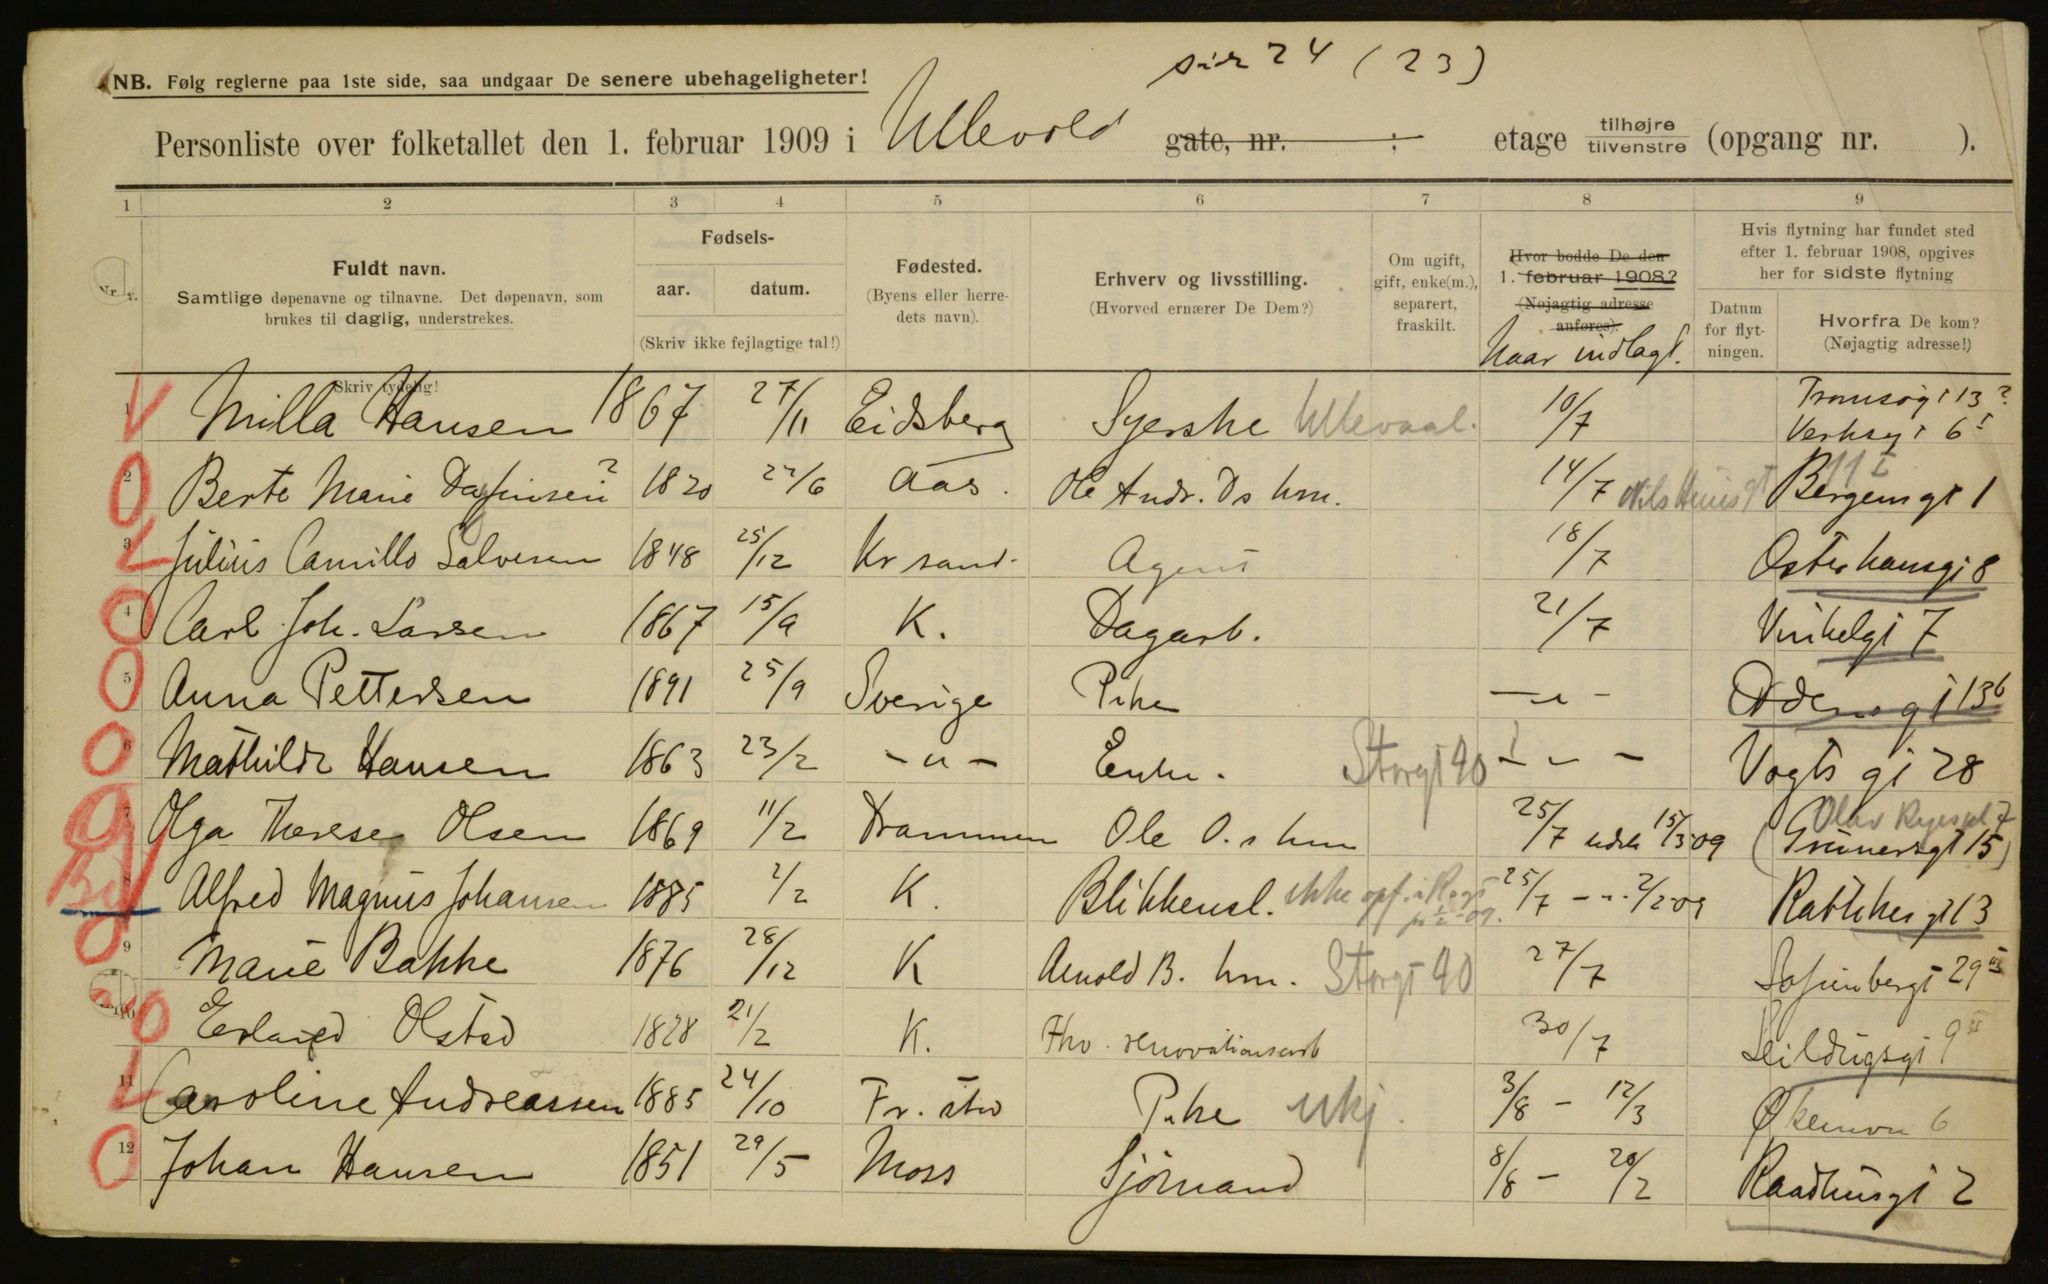 side 24 (23)
NB. Følg reglerne paa 1ste side, saa undgaar De senere ubehageligheter!
Personliste over folketallet den 1. februar 1909 i Ullevold gate, nr. : etage tilhøjre tilvenstre (opgang nr. ).
1 2 3 4 5 6 7 8 9
Nr. Fuldt navn.
Samtlige døpenavne og tilnavne. Det døpenavn, som
brukes til daglig, understrekes.
Skriv tydelig!
Fødsels-
aar. datum.
(Skriv ikke fejlagtige tal!)
Fødested.
(Byens eller herre-
dets navn).
Erhverv og livsstilling.
(Hvorved ernærer De Dem?)
Om ugift,
gift, enke(m.),
separert,
fraskilt.
Hvor bodde De den
1. februar 1908?
(Nøjagtig adresse
anføres).
Naar indlagt.
Hvis flytning har fundet sted
efter 1. februar 1908, opgives
her for sidste flytning
Datum
for flyt-
ningen.
Hvorfra De kom?
(Nøjagtig adresse!)
1 Milla Hansen 1867 27/11 Eidsberg Syerske Ullevaal. 10/7 Tromsøgt 13?
Verksgt 6 I
2 Berte Marie 1820 22/6 Aas. Ole Andr. Ds hm. 14/7 Nils Huus gt 11 I Bergensgt 1
3 Julius Camillo Salvesen 1848 25/12 Kr sand. Agent 18/7 Osterhausgt 8
4 Carl Joh. Larsen 1867 15/9 K. Dagarb. 21/7 Vinkelgt 7
5 Anna Pettersen 1891 25/9 Sverige Pike — " - 13 b
6 Mathilde Hansen 1863 23/2 - " - Enke. Storgt 40 - " - Vogts gt 28
7 Olga Therese Olsen 1869 11/2 Drammen Ole O. s hm 25/7 udsk 15/3 09 Olav Ryespl 7 (Grünersgt 15)
8 Alfred Magnus Johansen 1885 2/2 K. Blikkensl. ikke opf. i Regt pr 1/2-09. 25/7 - " - 2/2 09 13
9 Marie Bakke 1876 28/12 K Arnold B. hm. Storgt 40 27/7 Sofienbergt 29 III
10 Erland Olstad 1828 21/2 K. Fhv. renovationsarb 30/7 Seildugsgt 9 II
11 Caroline Andreassen 1885 24/10 Fr. stad Pike ukj. 3/8 - 12/3 Økernvn 6
12 Johan Hansen 1851 29/5 Moss Sjømand 8/8 - 20/2 Raadhusgt 2